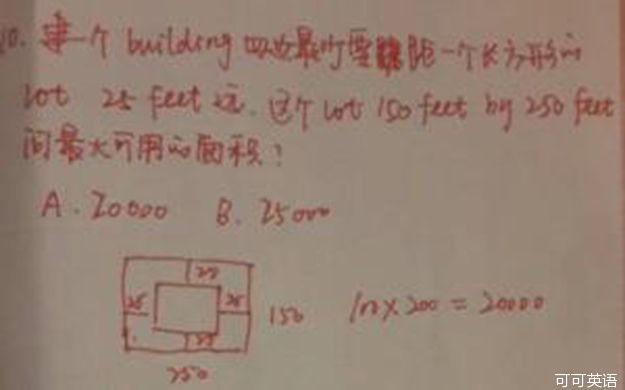 10. 建一个 building 四边最少要距一个长方形的
lot 25 feet 远. 这个 lot 150 feet by 250 feet
问最大可用的面积?
A. 20000 B. 25000
25
25 25
25
150
250
100 × 200 = 20000
可可英语